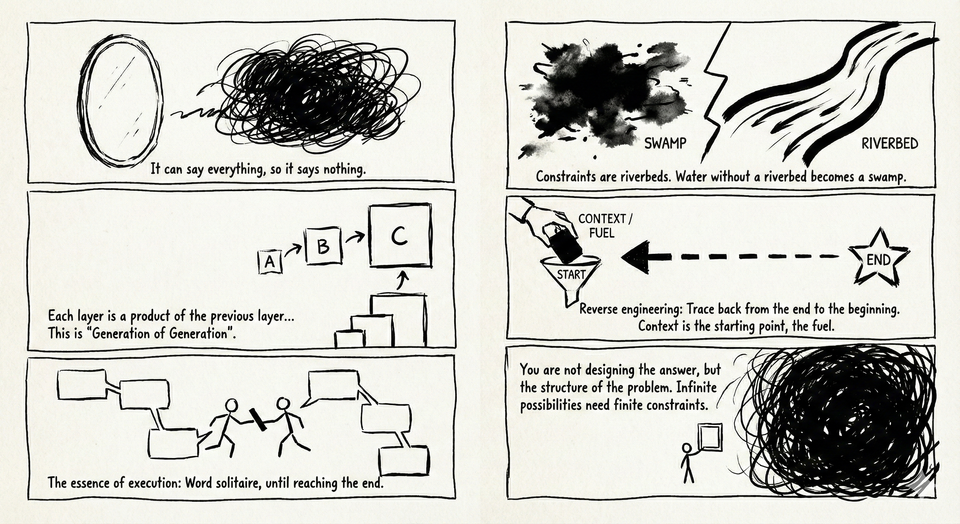 It can say everything, so it says nothing.
A
B
C
Each layer is a product of the previous layer...
This is “Generation of Generation”.
The essence of execution: Word solitaire, until reaching the end.
SWAMP
RIVERBED
Constraints are riverbeds. Water without a riverbed becomes a swamp.
CONTEXT /
FUEL
START
END
Reverse engineering: Trace back from the end to the beginning.
Context is the starting point, the fuel.
You are not designing the answer, but
the structure of the problem. Infinite
possibilities need finite constraints.